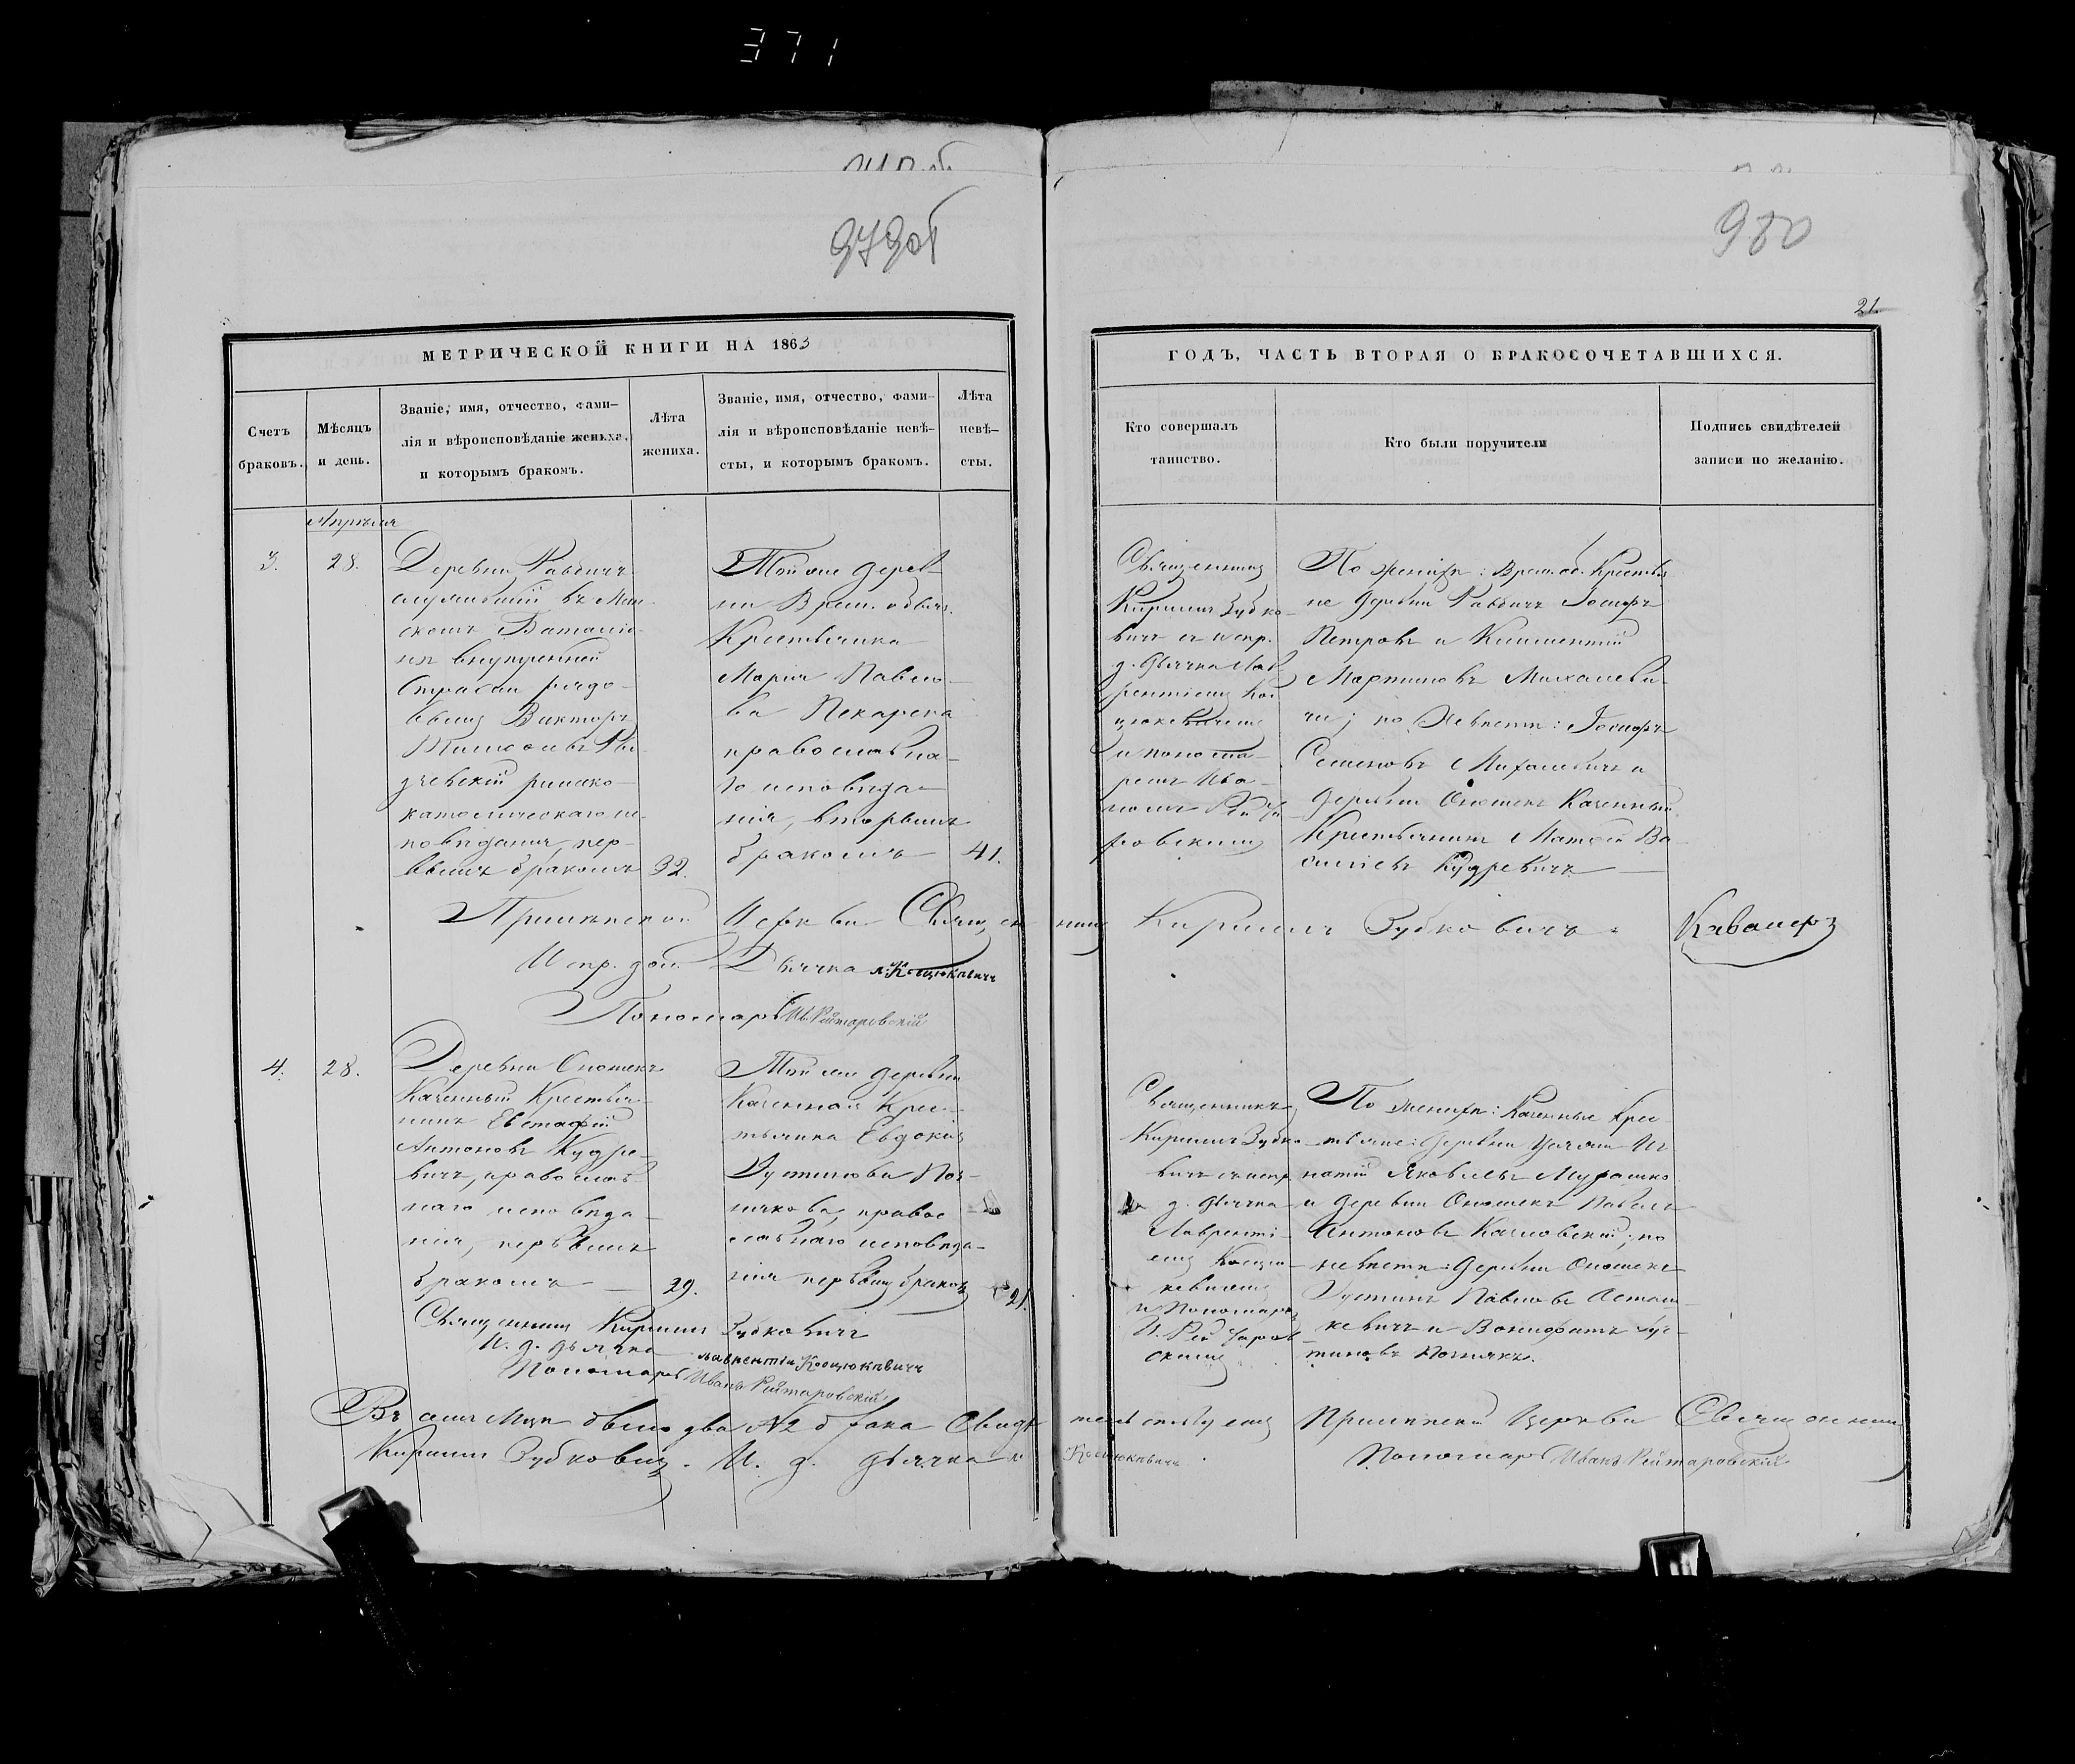 371
979об
980
21.
МЕТРИЧЕСКОЙ КНИГИ НА 1863
ГОДЪ, ЧАСТЬ ВТОРАЯ О БРАКОСОЧЕТАВШИХСЯ.
Счетъ
браковъ.
Мѣсяцъ
и день.
Званіе, имя, отчество, фами-
лія и вѣроисповѣданіе жениха,
и которымъ бракомъ.
Лѣта
жениха.
Званіе, имя, отчество, фами-
лія и вѣроисповѣданіе невѣ-
сты, и которымъ бракомъ.
Лѣта
невѣ-
сты.
Кто совершалъ
таинство.
Кто были поручители
Подпись свидѣтелей
записи по желанію.
Апрѣля
3.
28.
Деревни Равбичъ
служившій въ Мин-
скомъ Баталіо-
нѣ внутренней
Стражи рядо-
вымъ Викторъ
римско-
католическаго ис-
повѣданія, пер-
вымъ бракомъ
32.
Той же дерев-
ни Врем. обяз.
Крестьянка
Марія Павло-
ва Пекарска
православна-
го исповѣда-
нія, вторымъ
бракомъ
41.
Священникъ
Кириллъ Зубко-
вичъ съ испр.
д. дьячка Лав-
рентіемъ Кос-
цюкевичемъ
и понома-
ремъ Ива-
номъ Рейта-
ровскимъ
По женихѣ: Врем. об. Крестья
не деревни Равбичъ Іосифъ
Петровъ и Климентій
Мартиновъ Михалеви-
чи; по невѣстѣ: Іосифъ
Семеновъ Михалевичъ и
деревни Оношекъ Казенный
Крестьянинъ Матѳей Ва
силіевъ Кудревичъ
Церкви Священникъ Кириллъ Зубковичъ
Испр. дол. Дьячка Л. Косцюкевичъ
Пономарь Ив. Рейтаровскій
4.
28.
Деревни Оношекъ
Казенный Крестья-
нинъ Евстафій
Антоновъ Кудре-
вичъ, православ-
наго исповѣда-
нія, первымъ
бракомъ
29.
Той же деревни
Казенная Крес-
тьянка Евдокія
Іустинова Поз-
някова, правос
лавнаго исповѣда-
нія первымъ бракомъ
21.
Священникъ
Кириллъ Зубко-
вичъ съ испр
д. дьячка
Лавренті-
емъ Косцю-
кевичемъ
и Пономаремъ
И. Рейтаров-
скимъ
По женихѣ: Казенные Крес-
тьяне: деревни Иг
натій Яковлевъ Мурашко
и деревни Оношекъ Павелъ
Антоновъ; по
невѣстѣ: Деревни Оношекъ
Іустинъ Павловъ Асташ-
кевичъ и Вонифатъ Іус-
тиновъ Познякъ.
Священникъ Кириллъ Зубковичъ
И. д. дьячка Лаврентій Косцюкевичъ
Пономарь Иванъ Рейтаровскій
Въ семъ Мцѣ было два №2 брака Свидѣтельствуемъ Церкви Священникъ
Кириллъ Зубковичъ. И. д. дьячка Л. Косцюкевичъ. Пономарь Иванъ Рейтаровскій